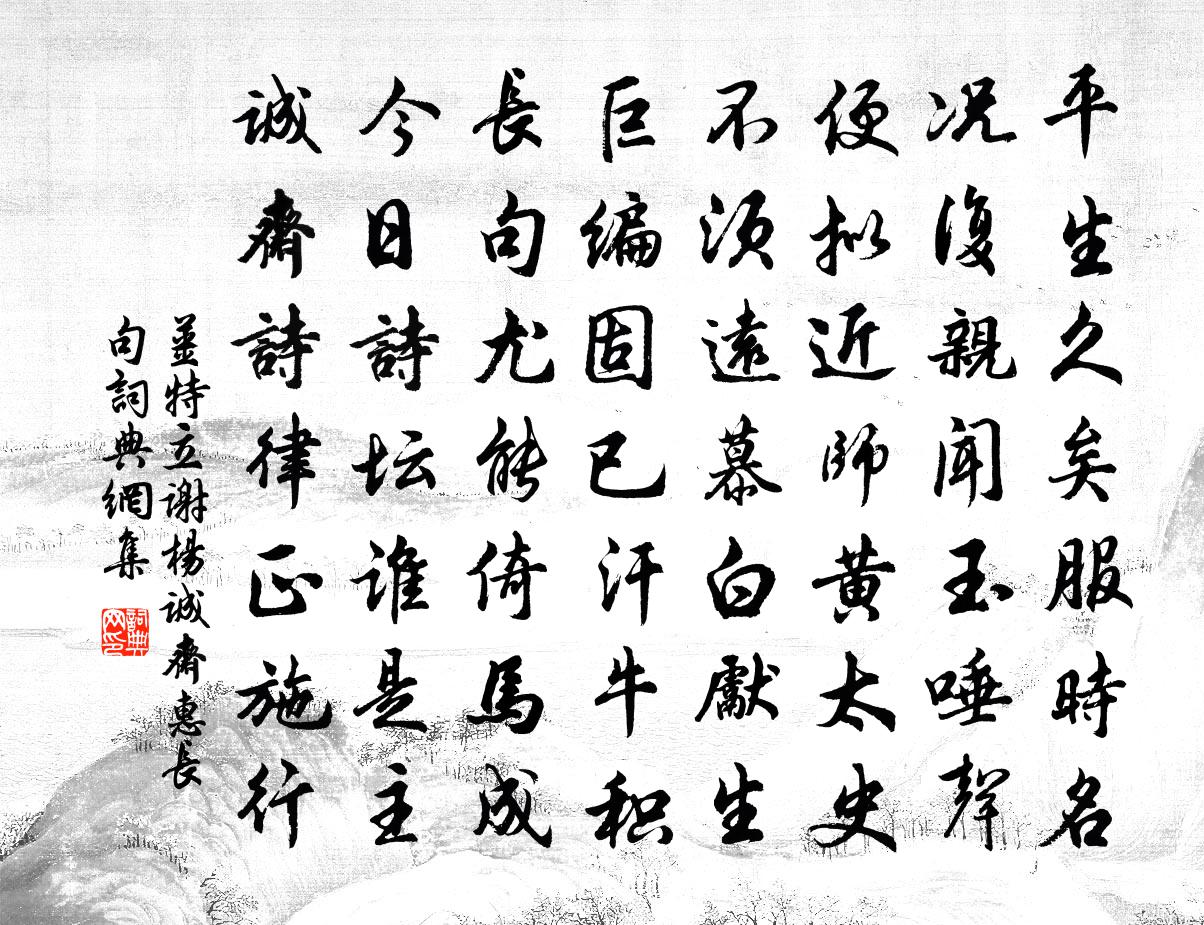 平生久矣服時名
况復親聞玉唾聲
便拟近師黄太史
不須遠慕白獻生
巨编固已汗牛积
長句尤能倚馬成
今日詩坛谁是主
誠齋詩律正施行
姜特立谢楊诚齋惠長
句詞典網集
詞典
网印